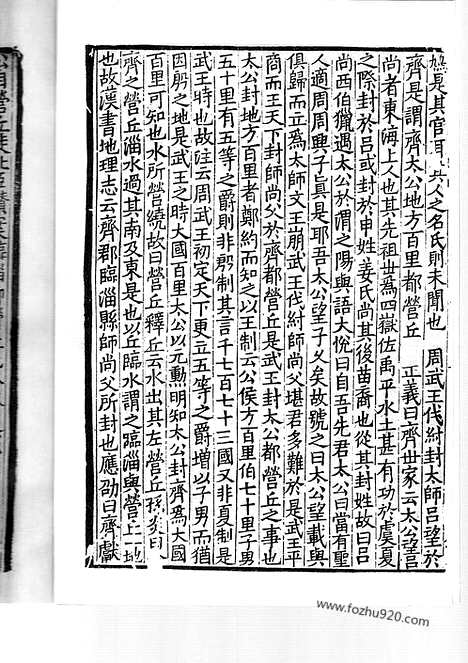 鳩是其官耳其人之名氏則未聞也　周武王伐紂封太師呂望於
齊是謂齊太公地方百里都營丘　正義曰齊世家云太公望呂
尚者東海上人也其先祖丗爲四嶽佐禹平水土甚有功於虞夏
之際封於呂或封於申姓姜氏尚其後苗裔也從其封姓故曰呂
尚西伯獵遇太公於渭之陽與語大悅曰自吾先君太公曰當有聖
人適周周興子真是耶吾太公望子乆矣故號之曰太公望載與
俱歸而立爲太師文王崩武王伐紂師尚父堪君多難於是武王平
商而王天下封師尚父於齊都營丘是武王封太公都營丘之事也
太公封地方百里者鄭約而知之以王制云公侯方百里伯七十里子男
五十里有五等之爵則非殷制其言千七百七十三國又非夏制是
武王時也故注云周武王初定天下更立五等之爵增以子男而猶
因殷之地是武王之時大國百里太公以元勳明知太公封齊爲大國
百里可知也水所營繞故曰營丘釋丘云水出其左營丘孫炎曰
齊之營丘淄水過其南及東是也以丘臨水謂之臨淄與營丘一地
也故漢書地理志云齊郡臨淄縣師尚父所封也應劭曰齊獻
www.fozhu920.com